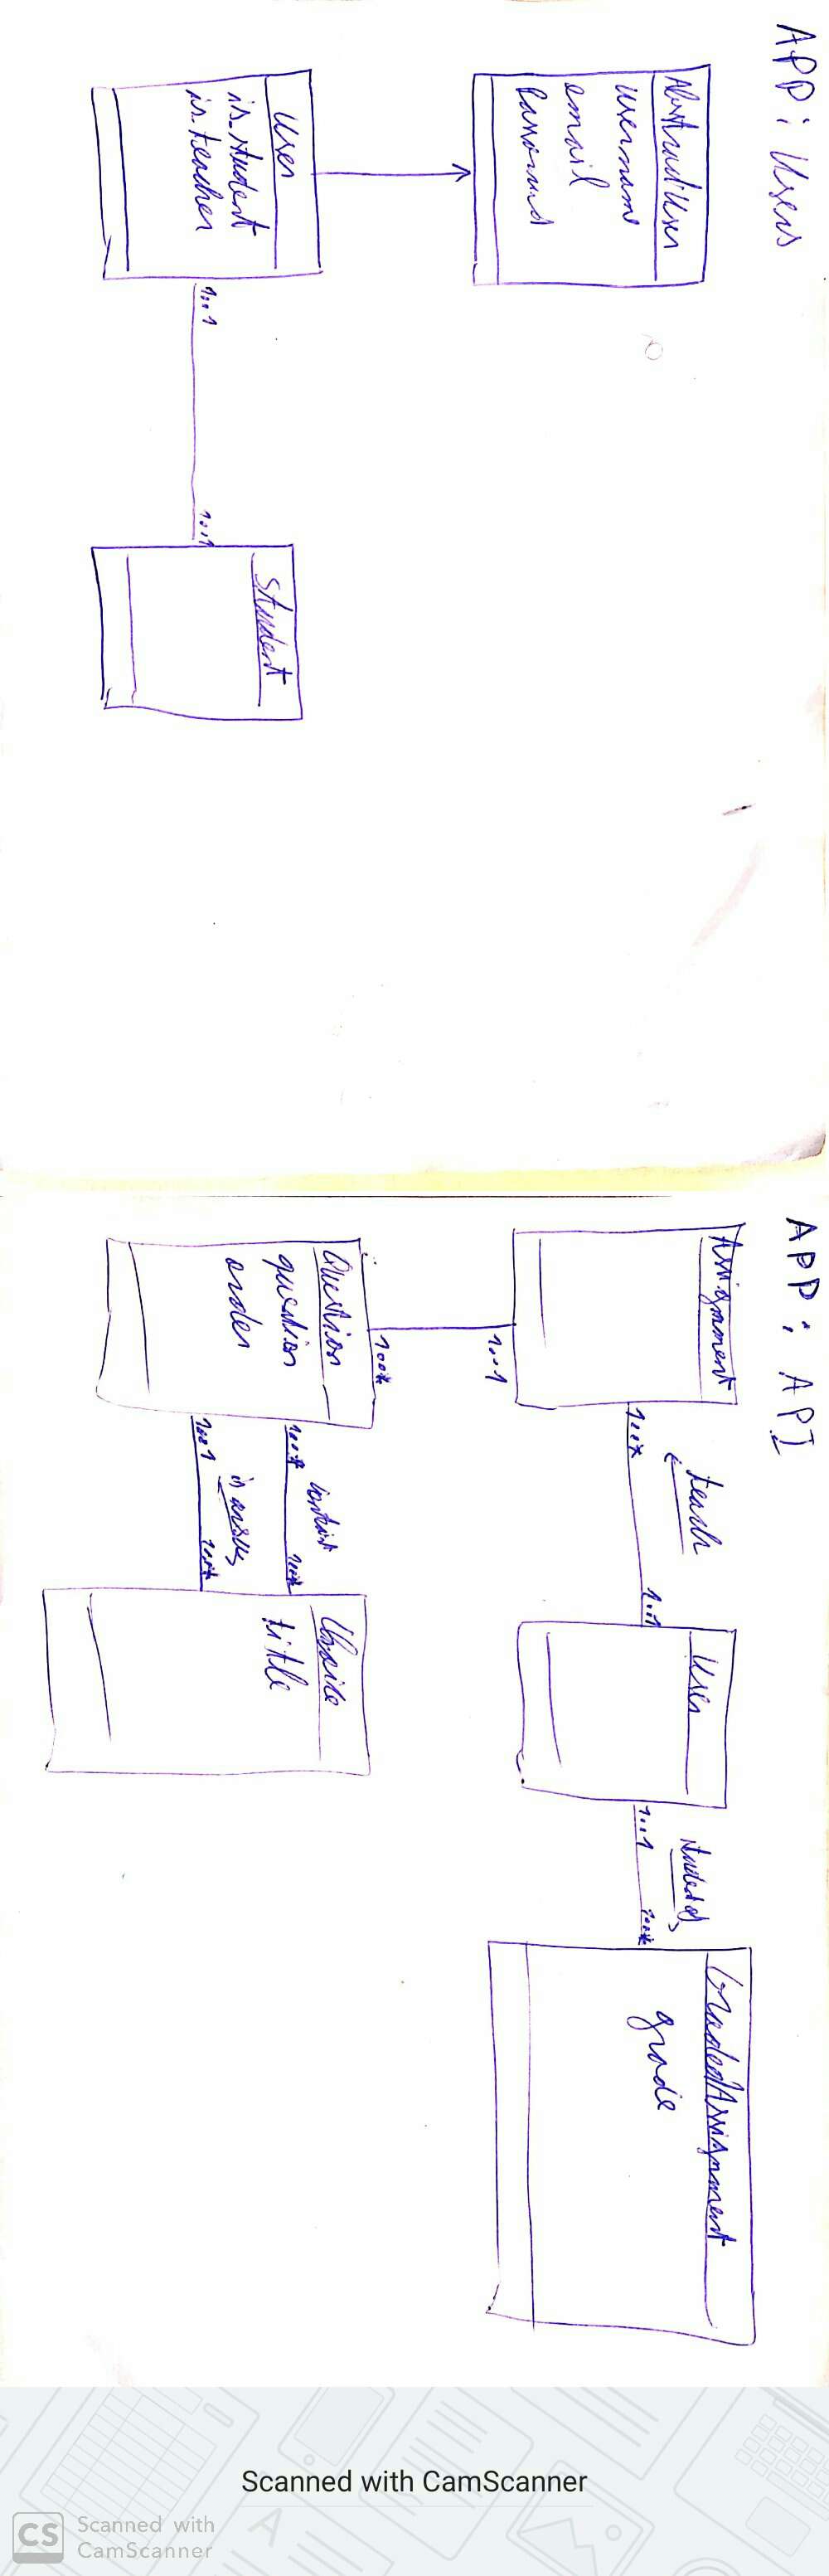 APP: Users
AbstractUser
username
email
password
User
is_student
is_teacher
1..1
1..1
Student
APP: API
Assignment
1..*
teach
1..1
User
1..1
1..*
GradedAssignment
grade
1..1
1..*
Question
question
order
1..*
1..*
1..1
1..*
Choice
title
Scanned with CamScanner
CS
Scanned with
CamScanner